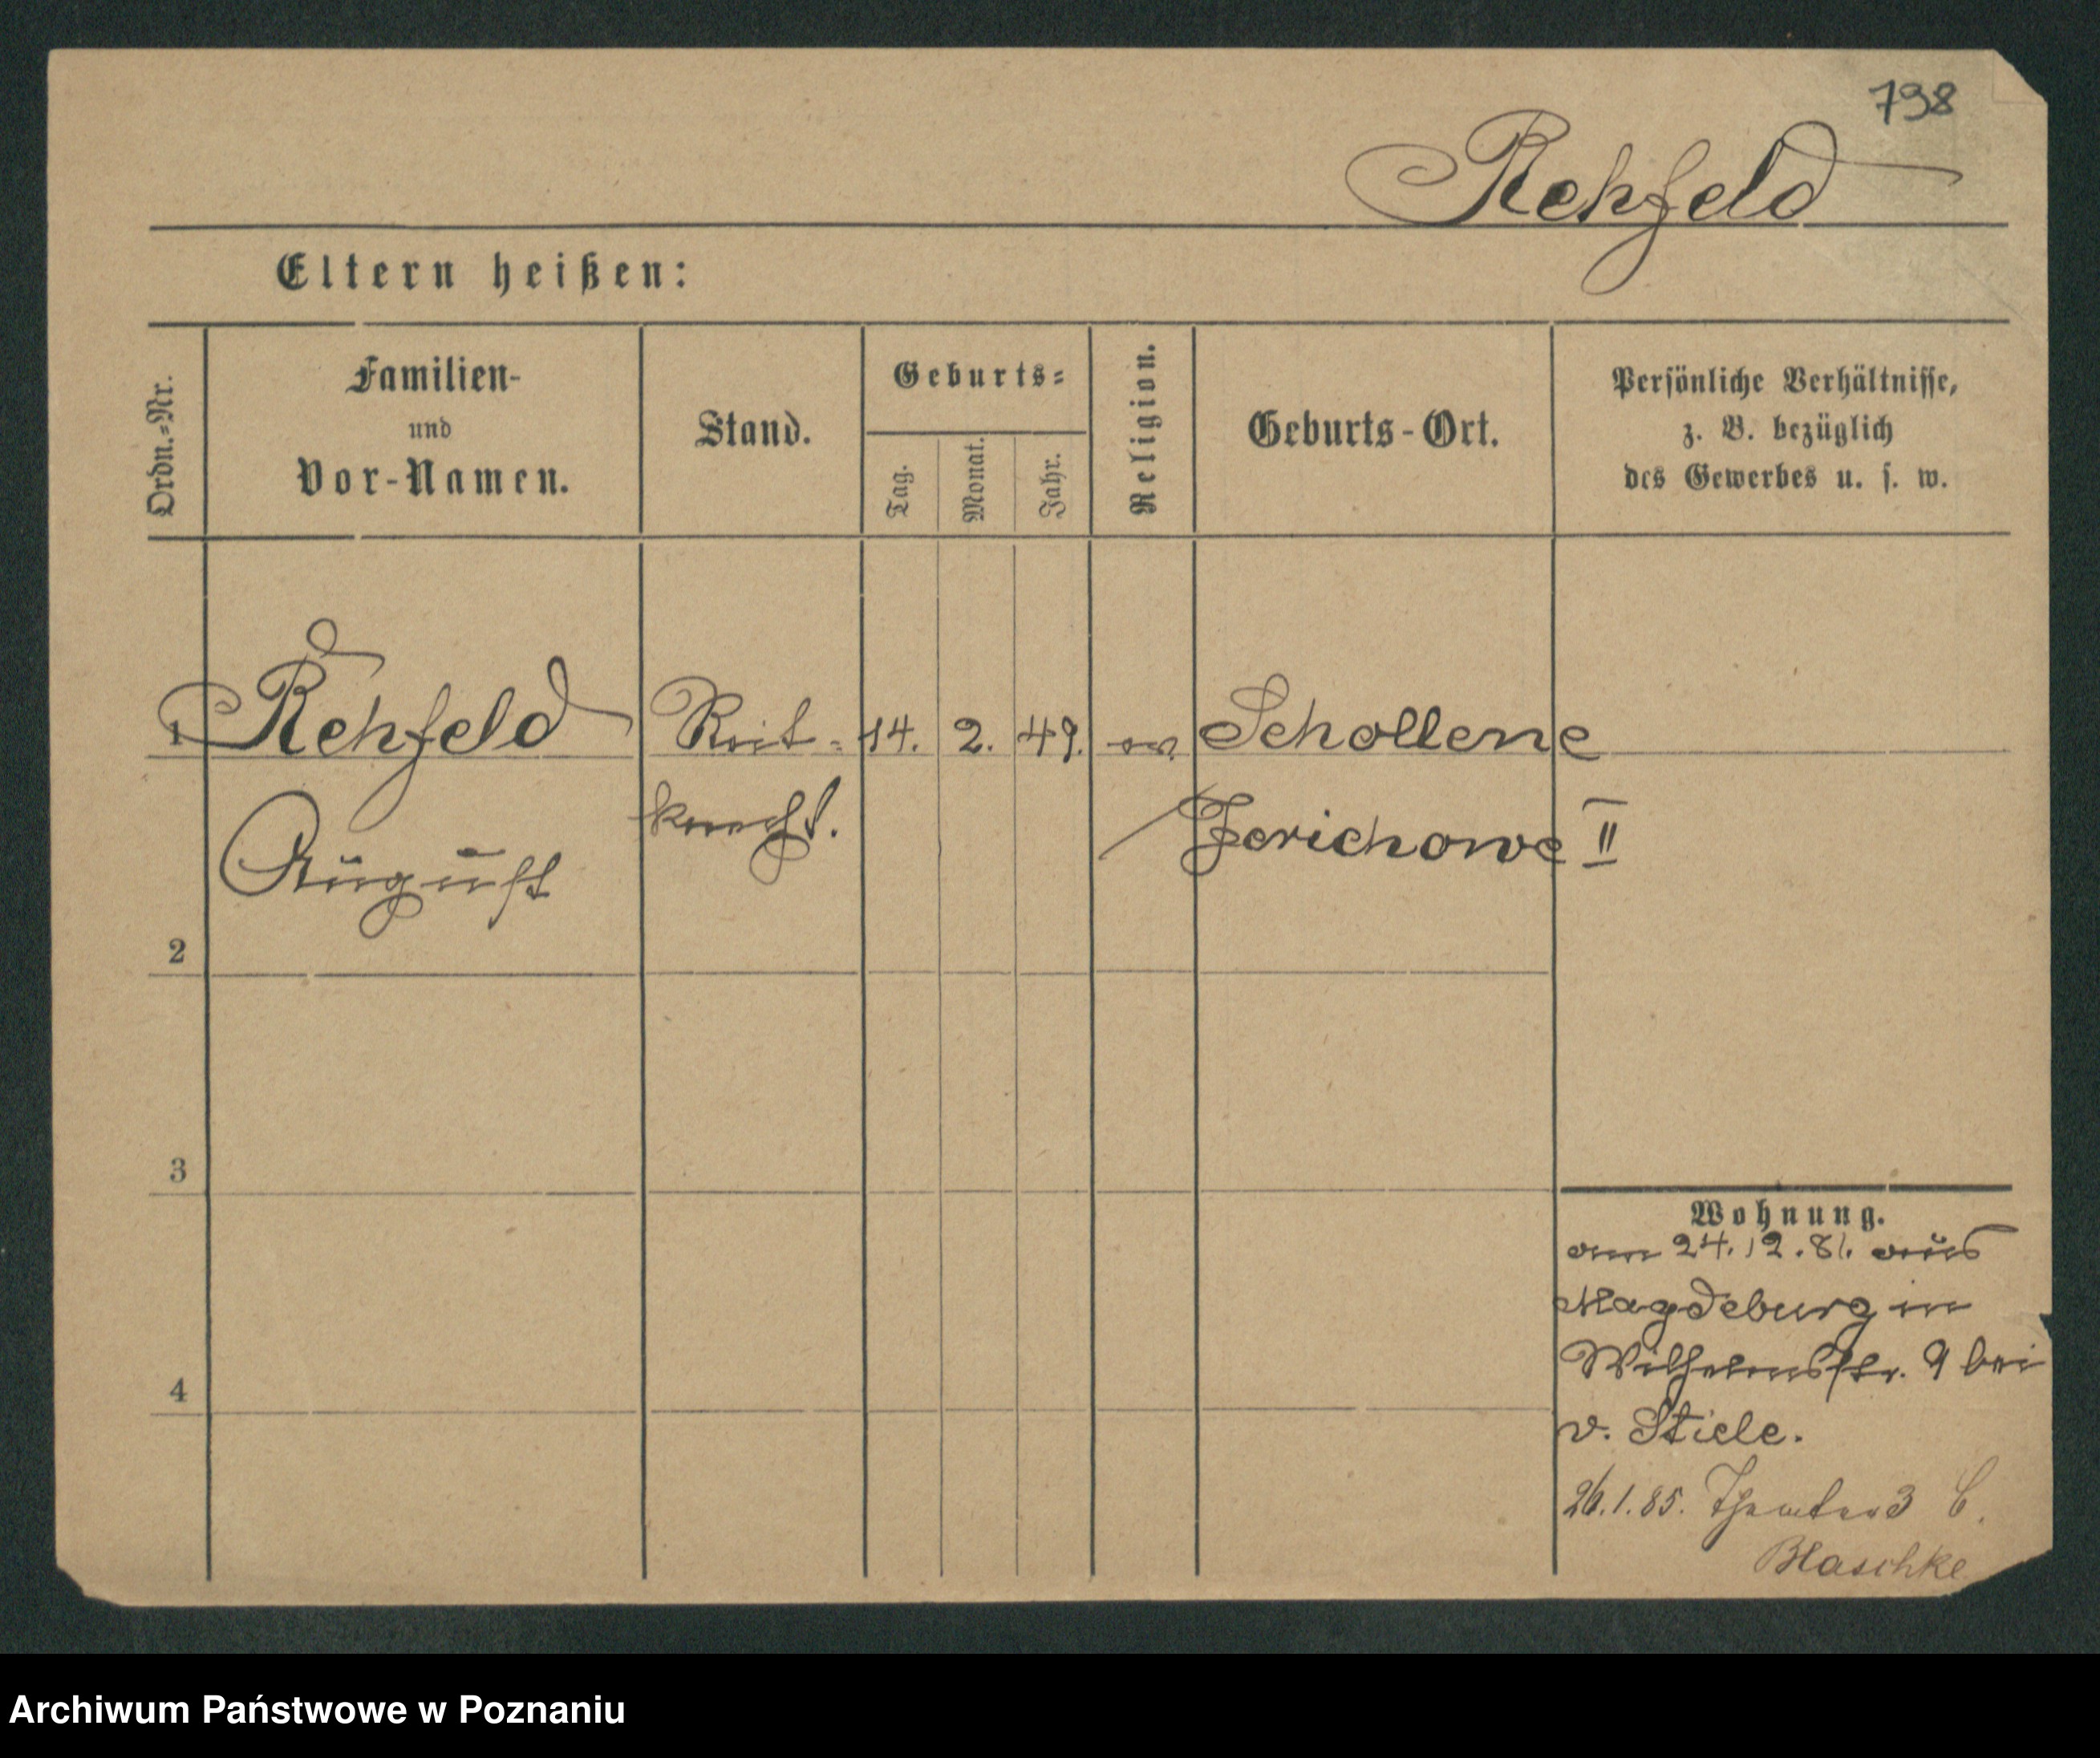 798
Rehfeld
Eltern heißen:
Ordn.=Nr.
Familien-
und
Vor-Namen.
Stand.
Geburts=
Tag.
Monat.
Jahr.
Religion.
Geburts-Ort.
Persönliche Verhältnisse,
z. B. bezüglich
des Gewerbes u. s. w.
1 Rehfeld Reit= 14. 2. 49. ev. Schollene
August knecht. Jerichowe II
2
3
4
Wohnung.
am 24.12.81. aus
Magdeburg in
Wilhelmsstr. 9 bei
v. Stiele.
26.1.85. 3
Blaschke
Archiwum Państwowe w Poznaniu